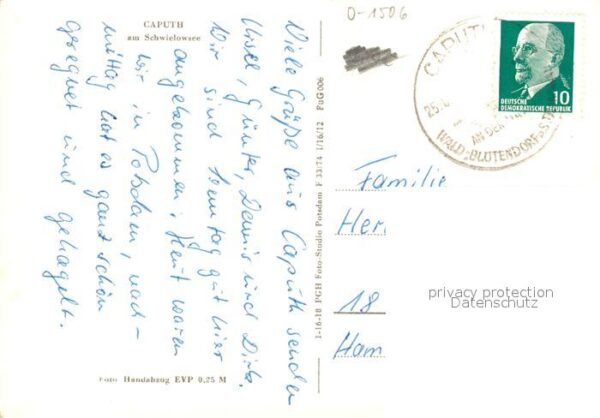 CAPUTH
am Schwielowsee
Viele Grüße aus Caputh senden
Ursel, Günter, Denis und Dirk.
Wir sind Sonntag gut hier
angekommen. Heut waren
wir in Potsdam, nach-
mittag hat es ganz schön
geregnet und gehagelt.
Foto Handabzug EVP 0,25 M
1-16-18 PGH Foto-Studio Potsdam F 33/74 I/16/12 PuG 006
0-1506
CAPUTH
25.
AN DER
WALD-BLÜTENDORF
DEUTSCHE
DEMOKRATISCHE REPUBLIK
10
Familie
Her
18
Ham
privacy protection
Datenschutz